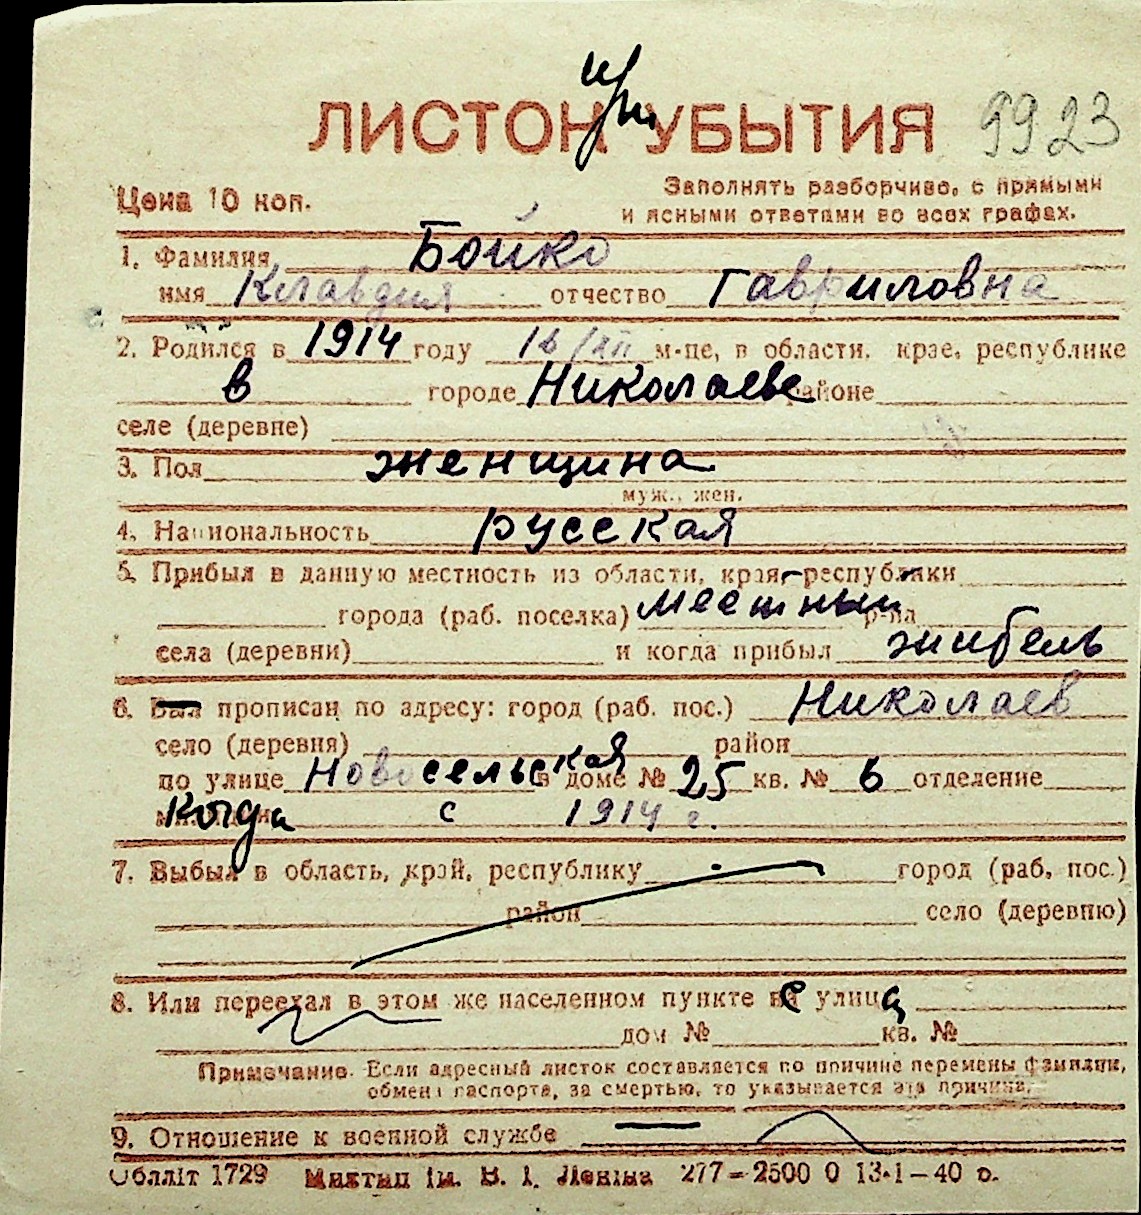 ЛИСТОК при УБЫТИЯ 9923
Цена 10 коп.
Заполнять разборчиво, с прямыми
и ясными ответами во всех графах.
1. Фамилия Бойко
имя Клавдия отчество Гавриловна
2. Родился в 1914 году 16/XII м-це, в области, крае, республике
в городе Николаеве районе
селе (деревне)
3. Пол женщина
муж., жен.
4. Национальность русская
5. Прибыл в данную местность из области, края, республики
города (раб. поселка) местный р-на
села (деревни) и когда прибыл жибель
6. Был прописан по адресу: город (раб. пос.) Николаев
село (деревня) район
по улице Новосельская в доме № 25 кв. № 6 отделение
когда с 1914 г.
7. Выбыл в область, край, республику город (раб. пос.)
район село (деревню)
8. Или переехал в этом же населенном пункте с улица
дом № кв. №
Примечание. Если адресный листок составляется по причине перемены фамилии,
обмена паспорта, за смертью, то указывается эта причина.
9. Отношение к военной службе
Облліт 1729 Миктип ім. В. І. Леніна 277—2500 0 13-1—40 р.